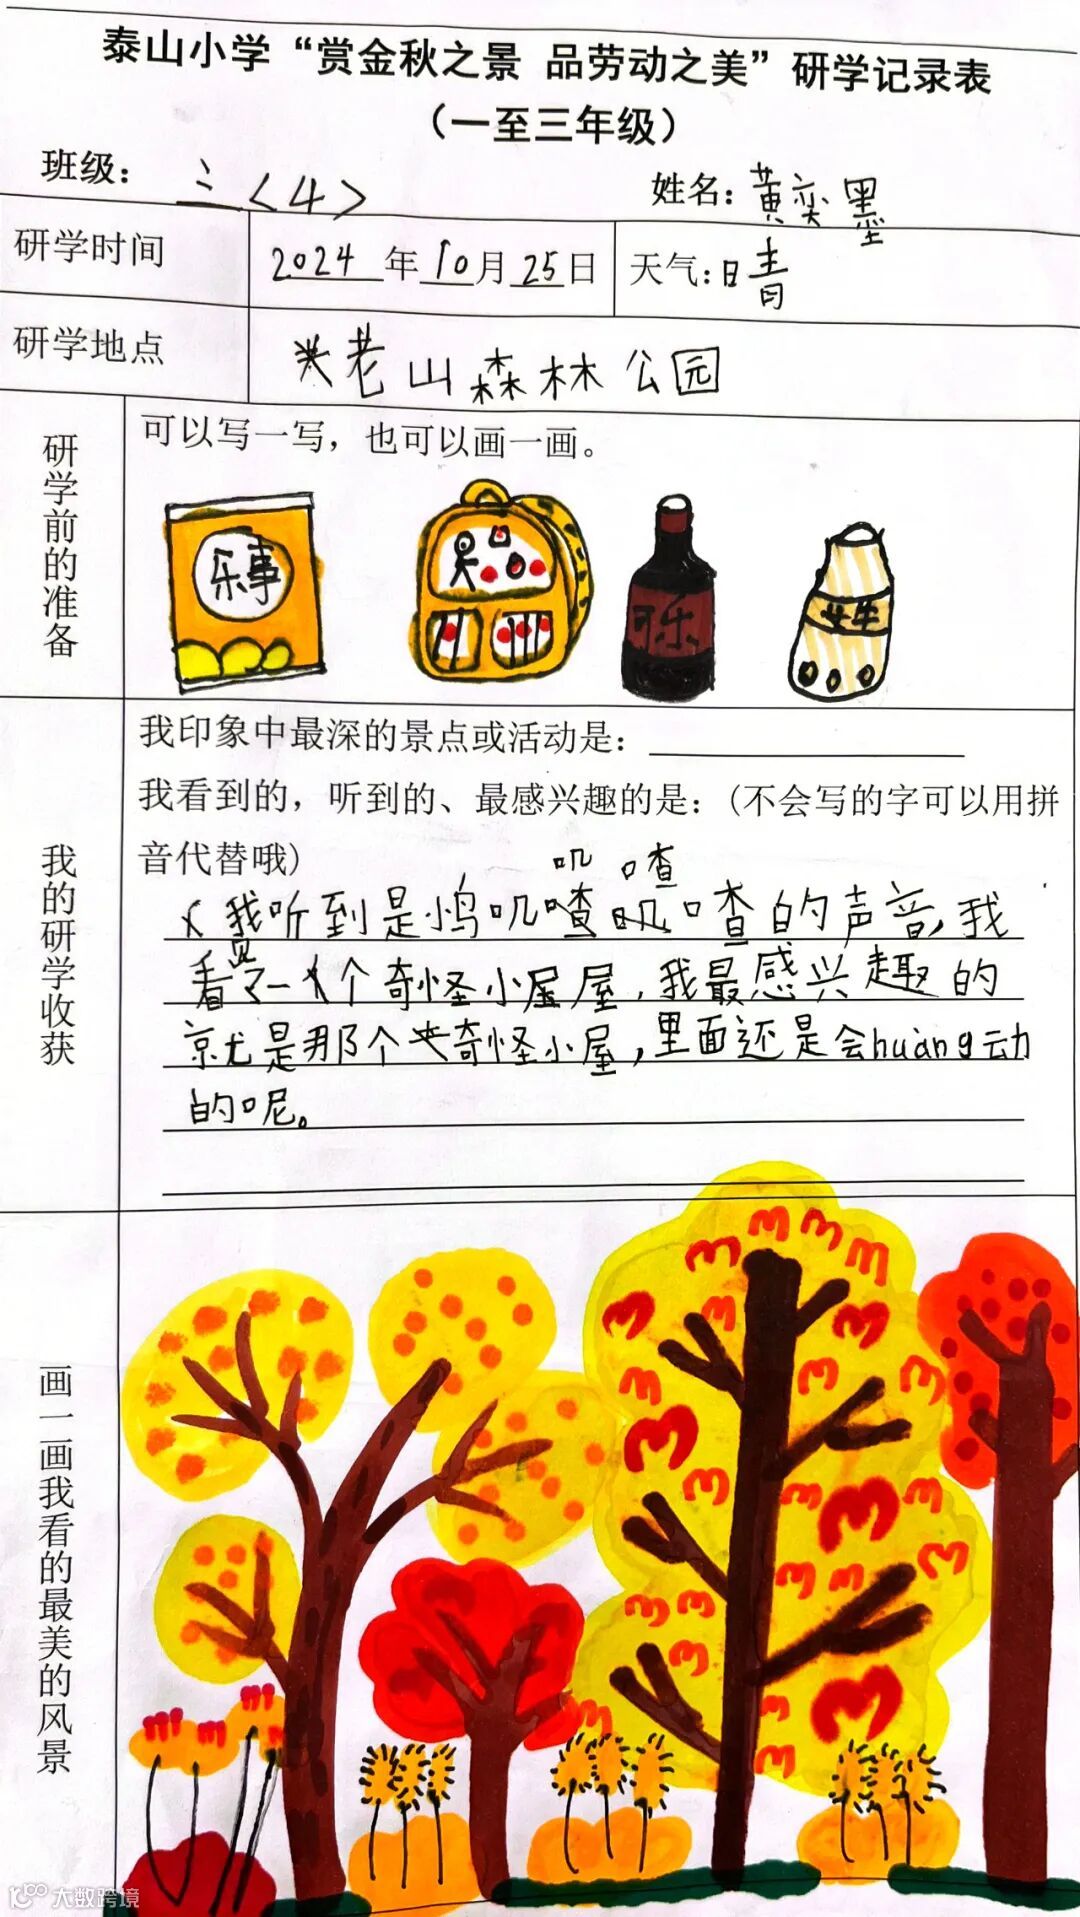 泰山小学“赏金秋之景 品劳动之美”研学记录表
（一至三年级）
班级：三<4> 姓名：黄奕墨
研学时间 2024年10月25日 天气：晴
研学地点 老山森林公园
研学前的准备
可以写一写，也可以画一画。
乐事
可乐
我的研学收获
我印象中最深的景点或活动是：
我看到的，听到的、最感兴趣的是：(不会写的字可以用拼
音代替哦)
叽 喳
我听到是鸟叽喳叽喳的声音，我
看见了一个奇怪小屋屋，我最感兴趣的
就是那个奇怪小屋，里面还是会huàng动
的呢。
画一画我看的最美的风景
大数跨境